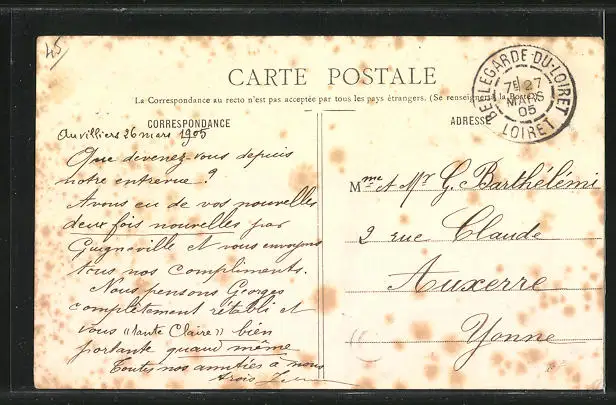 45
CARTE POSTALE
La Correspondance au recto n'est pas acceptée par tous les pays étrangers. (Se renseigner à la Poste)
CORRESPONDANCE
Auvilliers 26 mars 1905
Que devenez-vous depuis
notre entrevue ?
Avons eu de vos nouvelles
deux fois nouvelles par
Guigneville et vous envoyons
tous nos compliments.
Nous pensons Georges
complètement rétabli et
vous "tante Claire" bien
portante quand même
Toutes nos amitiés à nous
trois
ADRESSE
Mme & Mr G. Barthélémi
2 rue Claude
Auxerre
Yonne
BELLEGARDE-DU-LOIRET
7E 27
MARS
05
LOIRET